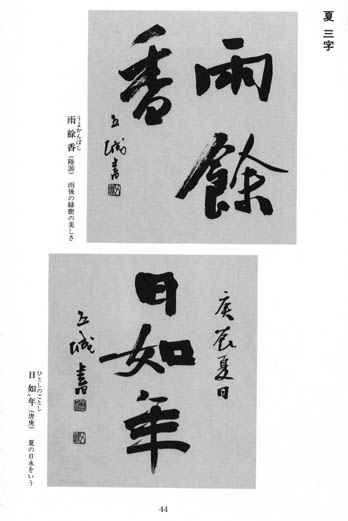 夏 三字
雨餘
香
うよかんばし
雨餘香(陸游) 雨後の緑樹の美しさ
庚辰夏日
日如年
ひとしのごとし
日如レ年(唐庚) 夏の日永をいう
44